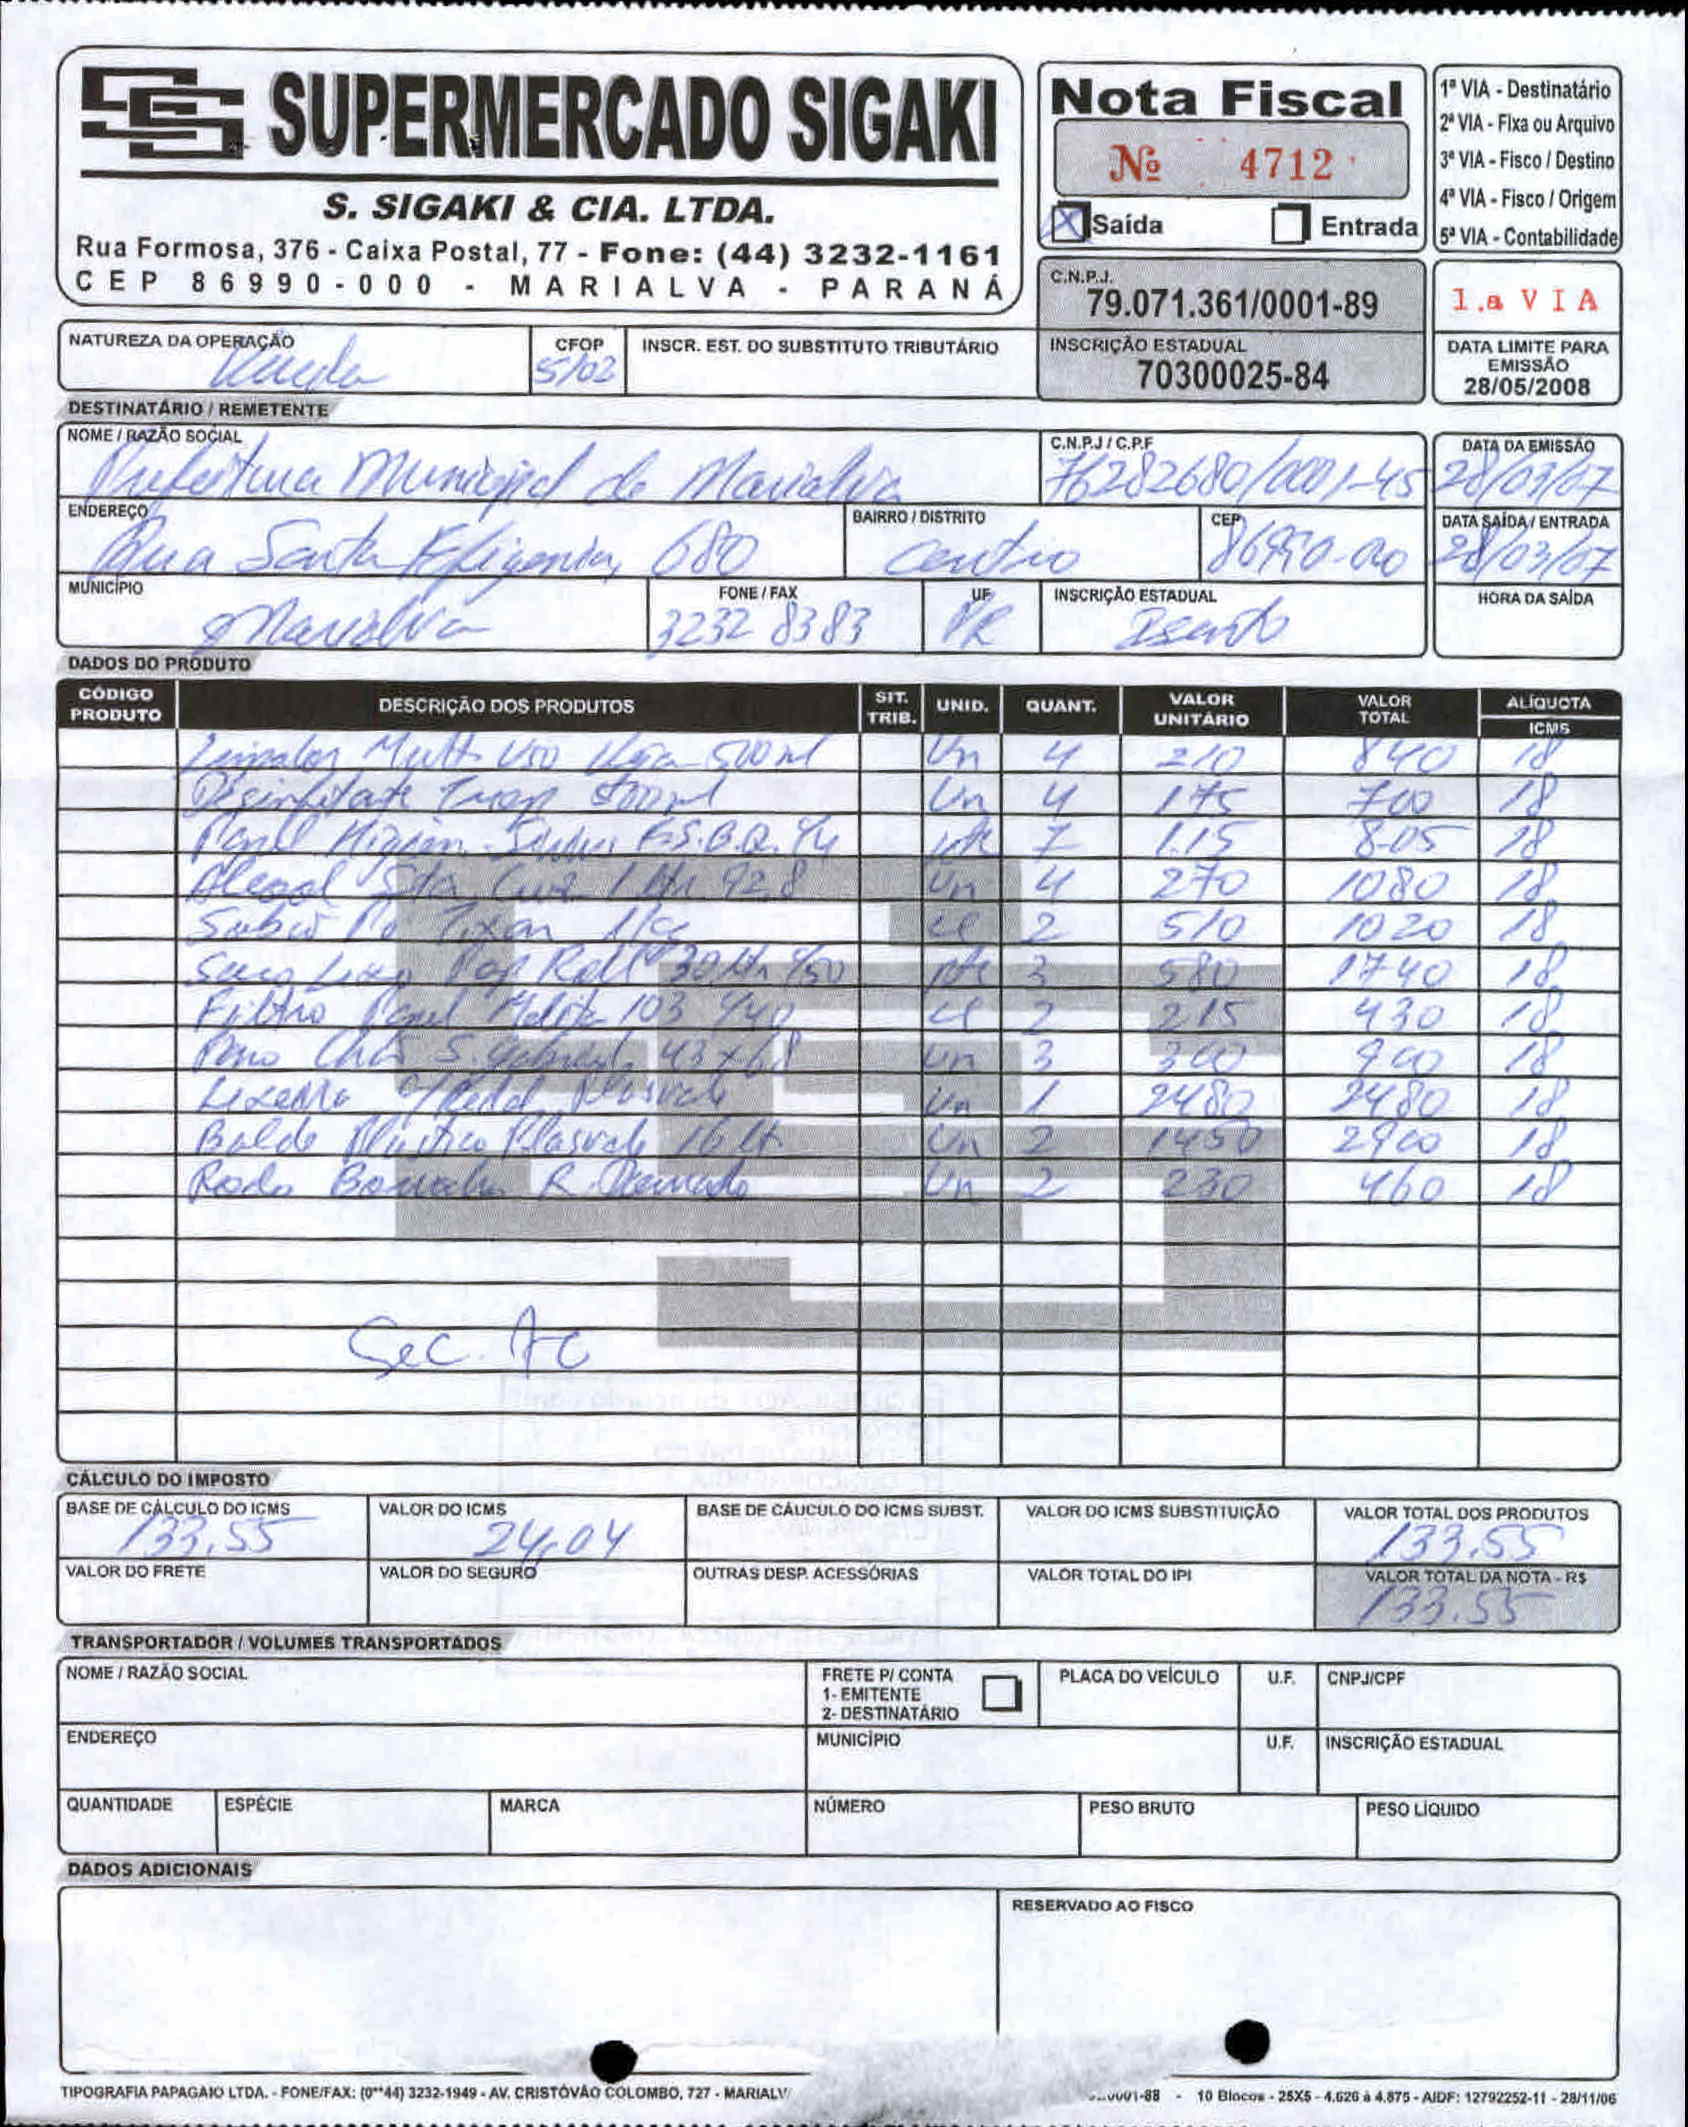 SS SUPERMERCADO SIGAKI
S. SIGAKI & CIA. LTDA.
Rua Formosa, 376 - Caixa Postal, 77 - Fone: (44) 3232-1161
CEP 86990-000 - MARIALVA - PARANÁ
Nota Fiscal
Nº 4712
X Saída Entrada
1ª VIA - Destinatário
2ª VIA - Fixa ou Arquivo
3ª VIA - Fisco / Destino
4ª VIA - Fisco / Origem
5ª VIA - Contabilidade
C.N.P.J.
79.071.361/0001-89
1.a VIA
NATUREZA DA OPERAÇÃO
Venda
CFOP
5102
INSCR. EST. DO SUBSTITUTO TRIBUTÁRIO
INSCRIÇÃO ESTADUAL
70300025-84
DATA LIMITE PARA
EMISSÃO
28/05/2008
DESTINATÁRIO / REMETENTE
NOME / RAZÃO SOCIAL
Prefeitura Municipal de Marialva
C.N.P.J / C.P.F
76282680/0001-45
DATA DA EMISSÃO
28/03/07
ENDEREÇO
Rua Santa Efigenia, 680
BAIRRO / DISTRITO
Centro
CEP
86990-000
DATA SAÍDA / ENTRADA
28/03/07
MUNICÍPIO
Marialva
FONE / FAX
3232 8383
UF
PR
INSCRIÇÃO ESTADUAL
Isento
HORA DA SAÍDA
DADOS DO PRODUTO
CÓDIGO PRODUTO DESCRIÇÃO DOS PRODUTOS SIT. TRIB. UNID. QUANT. VALOR UNITÁRIO VALOR TOTAL ALÍQUOTA ICMS
Limpador Mult Uso 500ml Un 4 210 840 18
500ml Un 4 175 700 18
Papel Higien. F.S.B.Q. c/4 pct 7 1.15 8.05 18
Alcool Sta Cruz 1 Ltr 92,8 Un 4 270 1080 18
Sabão Pó Tixan 1kg cx 2 510 1020 18
Saco Lixo Rol 30 Ltr c/50 pct 3 580 1740 18
Filtro Papel Melita 103 c/40 cx 2 215 430 18
Pano Chão S. Gabriel 43x68 Un 3 300 900 18
Lixeira c/Pedal Plasvale Un 1 2480 2480 18
Balde Plastico Plasvale 16 Lt Un 2 1450 2900 18
Rodo Borracha R. Un 2 230 460 18
Sec.
CÁLCULO DO IMPOSTO
BASE DE CÁLCULO DO ICMS
133,55
VALOR DO ICMS
24,04
BASE DE CÁUCULO DO ICMS SUBST.
VALOR DO ICMS SUBSTITUIÇÃO
VALOR TOTAL DOS PRODUTOS
133,55
VALOR DO FRETE
VALOR DO SEGURO
OUTRAS DESP. ACESSÓRIAS
VALOR TOTAL DO IPI
VALOR TOTAL DA NOTA - R$
133,55
TRANSPORTADOR / VOLUMES TRANSPORTADOS
NOME / RAZÃO SOCIAL
FRETE P/ CONTA
1- EMITENTE
2- DESTINATÁRIO
PLACA DO VEÍCULO
U.F.
CNPJ/CPF
ENDEREÇO
MUNICÍPIO
U.F.
INSCRIÇÃO ESTADUAL
QUANTIDADE
ESPÉCIE
MARCA
NÚMERO
PESO BRUTO
PESO LÍQUIDO
DADOS ADICIONAIS
RESERVADO AO FISCO
TIPOGRAFIA PAPAGAIO LTDA. - FONE/FAX: (0**44) 3232-1949 - AV. CRISTÓVÃO COLOMBO, 727 - MARIALV
0001-88 - 10 Blocos - 25X5 - 4.626 à 4.875 - AIDF: 12792252-11 - 28/11/06